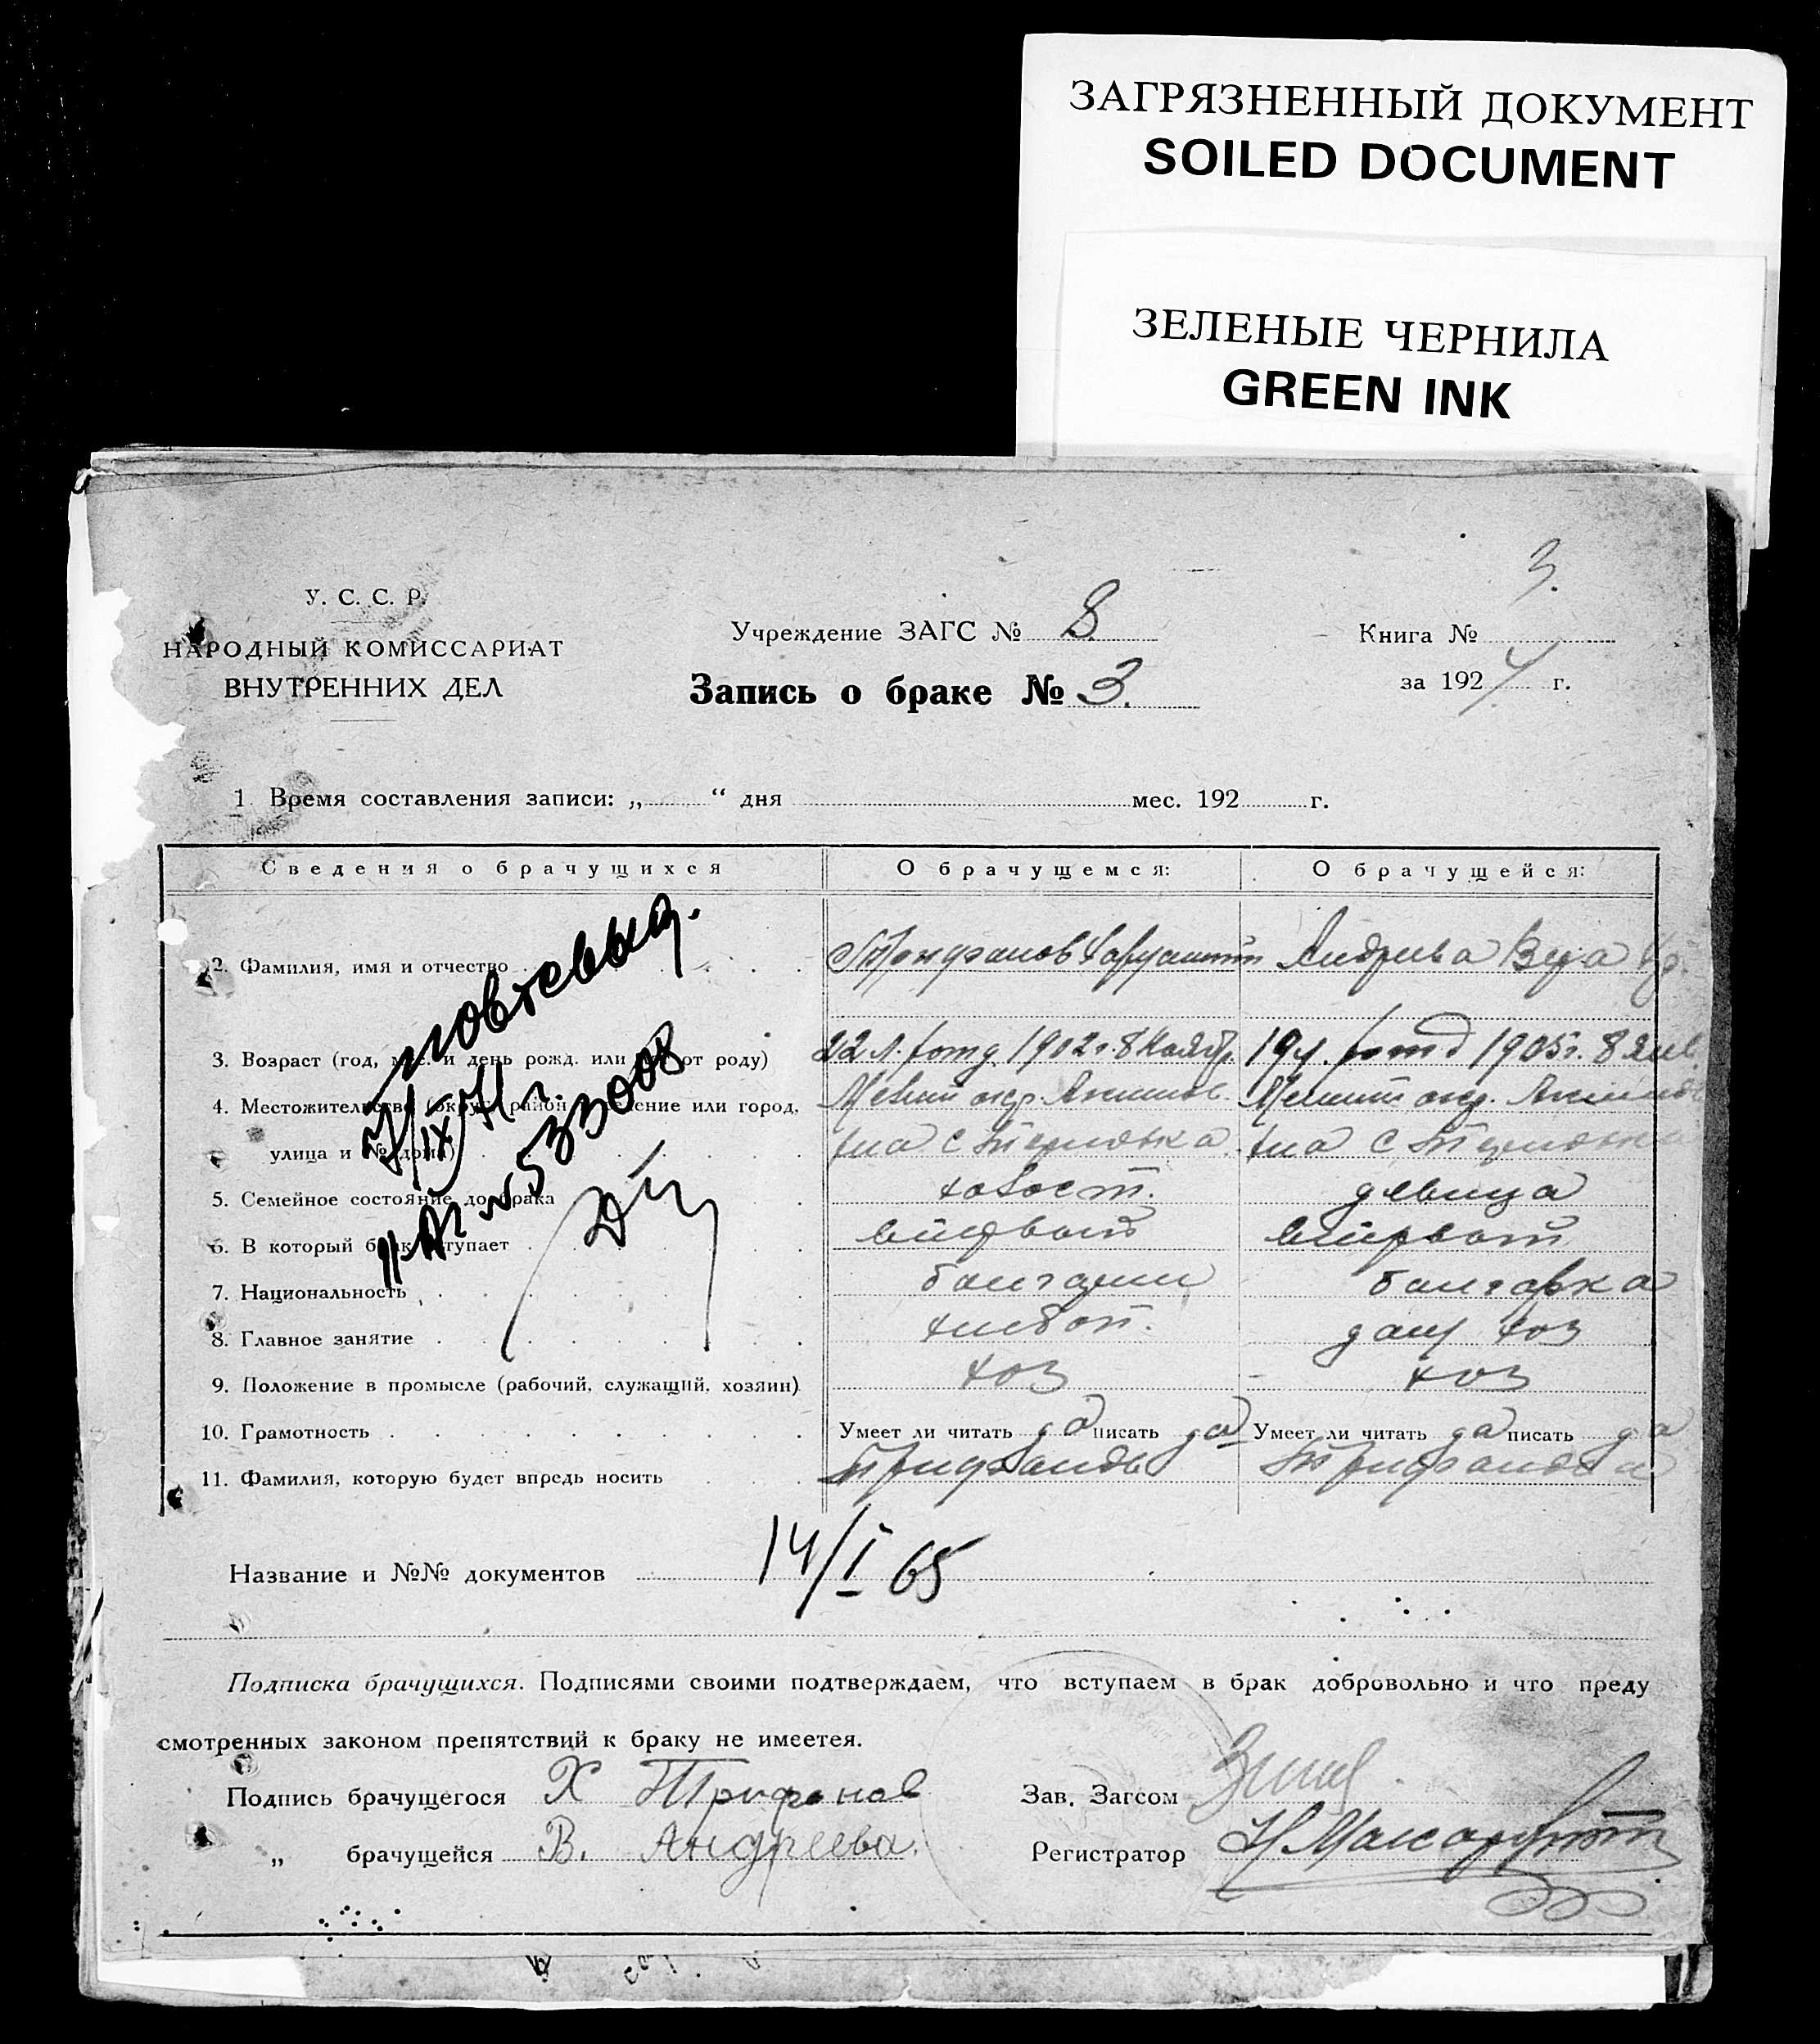 ЗАГРЯЗНЕННЫЙ ДОКУМЕНТ
SOILED DOCUMENT
ЗЕЛЕНЫЕ ЧЕРНИЛА
GREEN INK
3.
У. С. С. Р.
НАРОДНЫЙ КОМИССАРИАТ
ВНУТРЕННИХ ДЕЛ
Учреждение ЗАГС № 8
Запись о браке № 3.
Книга №
за 1924 г.
1 Время составления записи: „ “ дня мес. 192 г.
Сведения о брачущихся О брачущемся: О брачущейся:
2. Фамилия, имя и отчество Трифанов Андреева Вера
3. Возраст (год, мес. и день рожд. или лет от роду) 22 л. 1902 г. 8 Ноябр. 19 л. 1905 г. 8 Янв.
4. Местожительство (округ, район, селение или город, Мелит окр. Акимов. Мелит окр. Акимов
улица и № дома) на с на с
5. Семейное состояние до брака холост. девица
6. В который брак вступает в первый в первый
7. Национальность болгарин болгарка
8. Главное занятие хлебоп. дом хоз
9. Положение в промысле (рабочий, служащий, хозяин) хоз хоз
10. Грамотность Умеет ли читать да писать да Умеет ли читать да писать да
11. Фамилия, которую будет впредь носить Трифанов Трифанова
повторный.
IX 71 г.
№ 533008
Название и №№ документов 14/I 65
Подписка брачущихся. Подписями своими подтверждаем, что вступаем в брак добровольно и что преду
смотренных законом препятствий к браку не имеетея.
Подпись брачущегося Х Трифонов Зав. Загсом
„ брачущейся В. Андреева. Регистратор